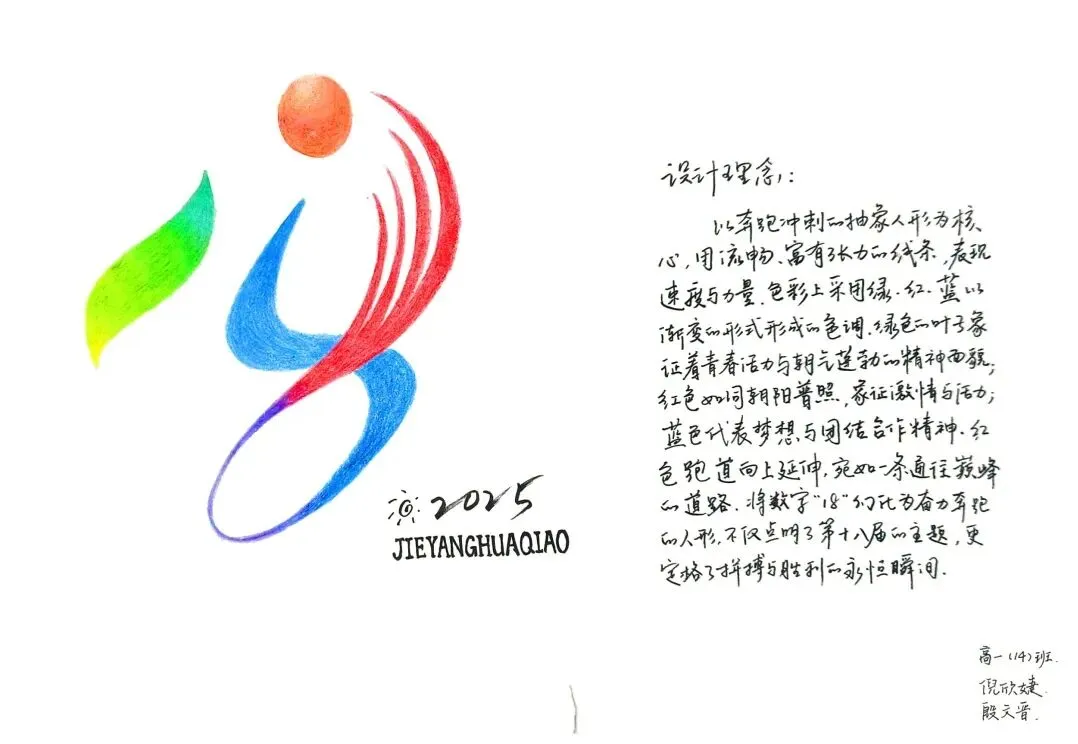 2025
JIEYANGHUAQIAO
设计理念:
以奔跑冲刺的抽象人形为核
心,用流畅、富有张力的线条,表现
速度与力量.色彩上采用绿、红、蓝以
渐变的形式形成的色调.绿色的叶子象
征着青春活力与朝气蓬勃的精神面貌;
红色如同朝阳普照,象征激情与活力;
蓝色代表梦想与团结合作精神.红
色跑道向上延伸,宛如一条通往巅峰
的道路.将数字“18”幻化为奋力奔跑
的人形,不仅点明了第十八届的主题,更
定格了拼搏与胜利的永恒瞬间.
高一(14)班.
倪欣婕.
殷文晋.